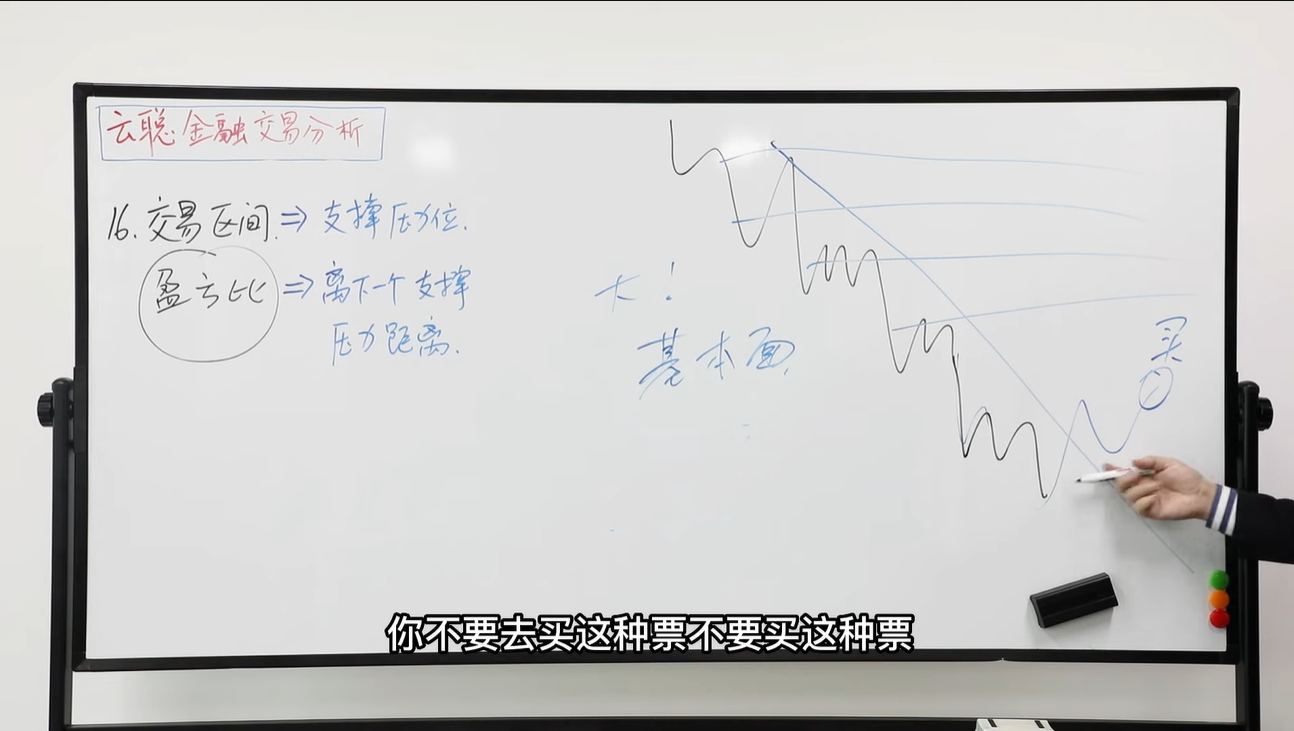 云聪金融交易分析
16.交易区间⇒支撑压力位.
盈亏比⇒离下一个支撑
压力距离.
大!
基本面
买
你不要去买这种票不要买这种票